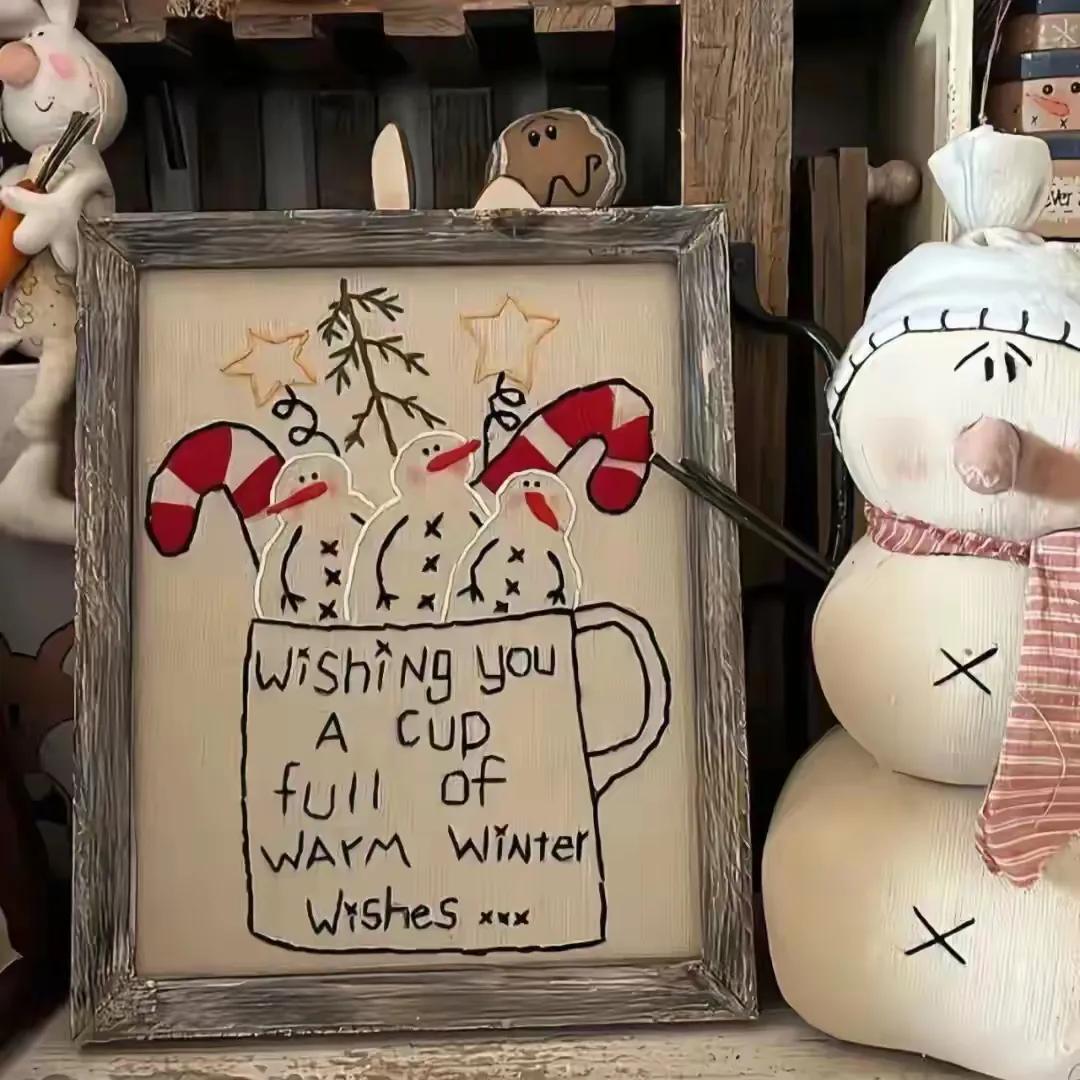 Wishing you
A CUP
full of
WArM Winter
Wishes xxx
ever